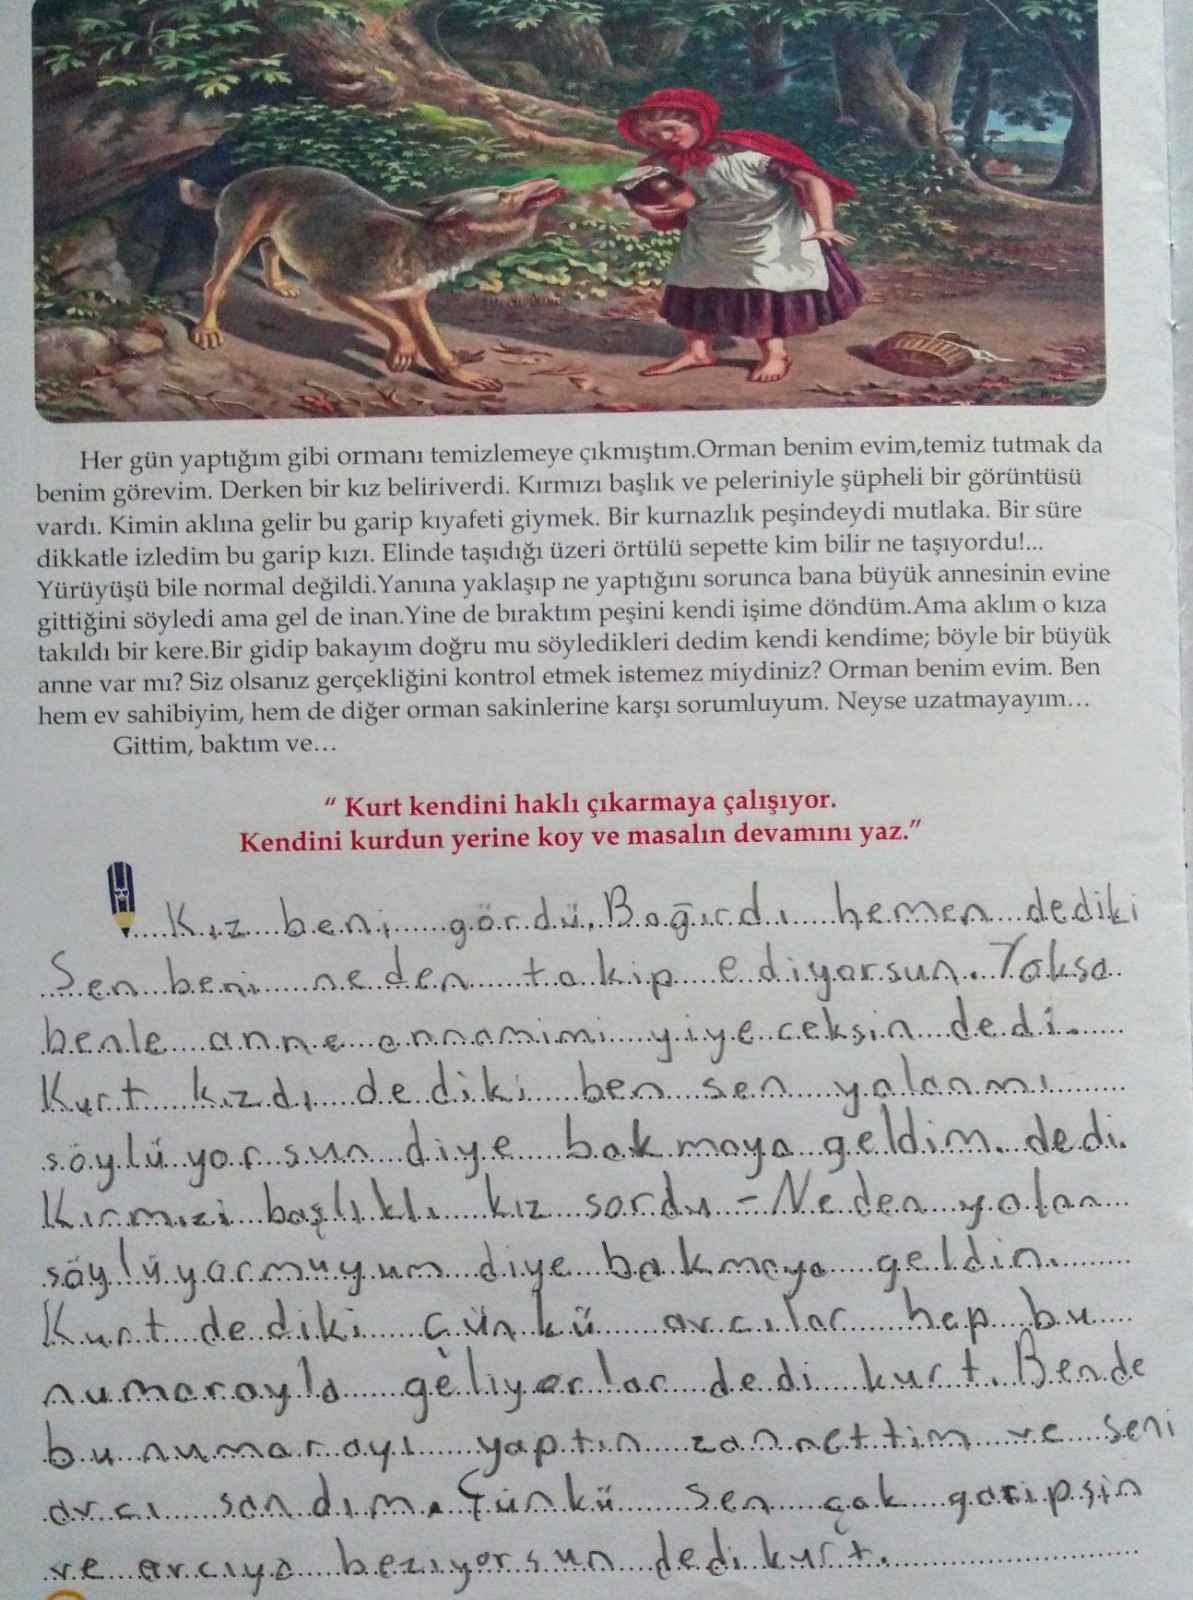 Her gün yaptığım gibi ormanı temizlemeye çıkmıştım.Orman benim evim,temiz tutmak da
benim görevim. Derken bir kız beliriverdi. Kırmızı başlık ve peleriniyle şüpheli bir görüntüsü
vardı. Kimin aklına gelir bu garip kıyafeti giymek. Bir kurnazlık peşindeydi mutlaka. Bir süre
dikkatle izledim bu garip kızı. Elinde taşıdığı üzeri örtülü sepette kim bilir ne taşıyordu!...
Yürüyüşü bile normal değildi.Yanına yaklaşıp ne yaptığını sorunca bana büyük annesinin evine
gittiğini söyledi ama gel de inan.Yine de bıraktım peşini kendi işime döndüm.Ama aklım o kıza
takıldı bir kere.Bir gidip bakayım doğru mu söyledikleri dedim kendi kendime; böyle bir büyük
anne var mı? Siz olsanız gerçekliğini kontrol etmek istemez miydiniz? Orman benim evim. Ben
hem ev sahibiyim, hem de diğer orman sakinlerine karşı sorumluyum. Neyse uzatmayayım...
Gittim, baktım ve...
" Kurt kendini haklı çıkarmaya çalışıyor.
Kendini kurdun yerine koy ve masalın devamını yaz."
Kız beni gördü. Bağırdı hemen dediki
Sen beni neden takip ediyorsun. Yoksa
benle anne annamimi yiyeceksin dedi.
Kurt kızdı dediki ben sen yalanmı
söylüyorsun diye bakmaya geldim. dedi.
Kırmızi başlıklı kız sordu - Neden yalan
söylüyormuyum diye bakmaya geldin.
Kurt dediki çünkü avcılar hep bu
numarayla geliyorlar dedi kurt. Bende
bu numarayı yaptın zannettim ve seni
avcı sandım. Çünkü sen çok garipsin
ve avcıya beziyorsun dedi kurt.